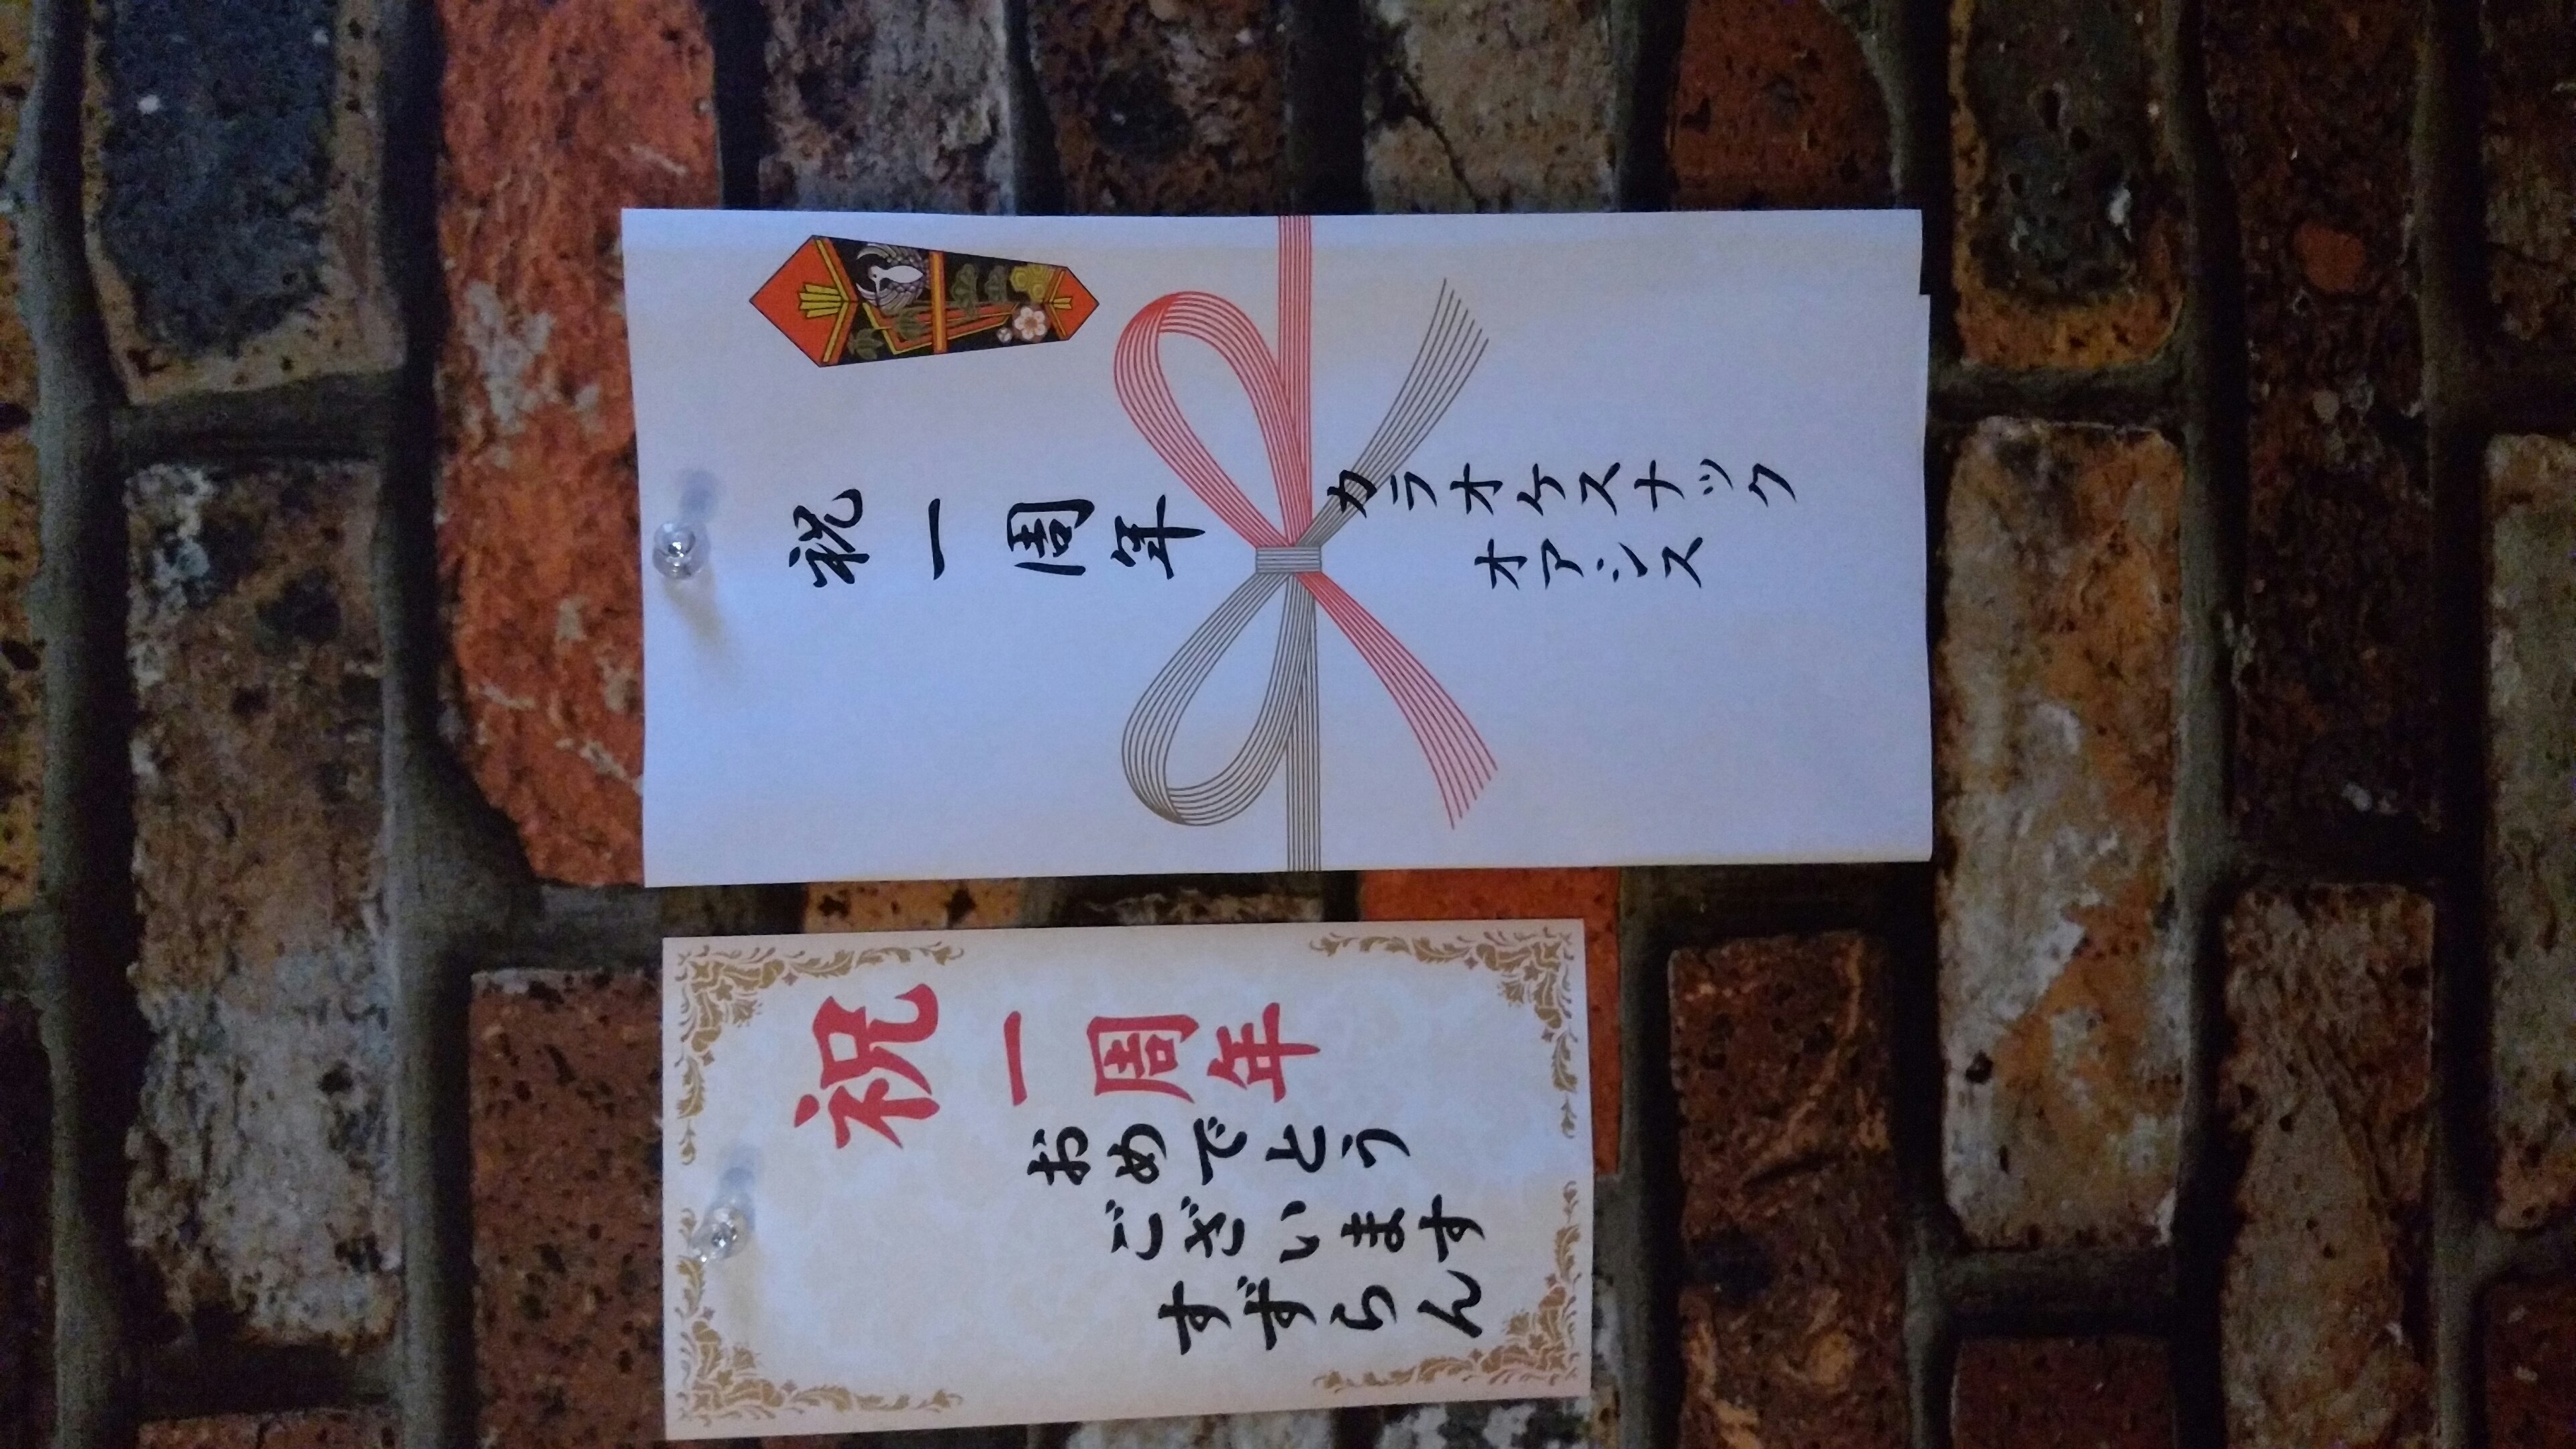 祝一周年
カラオケスナック
オアシス
祝一周年
おめでとう
ございます
すずらん